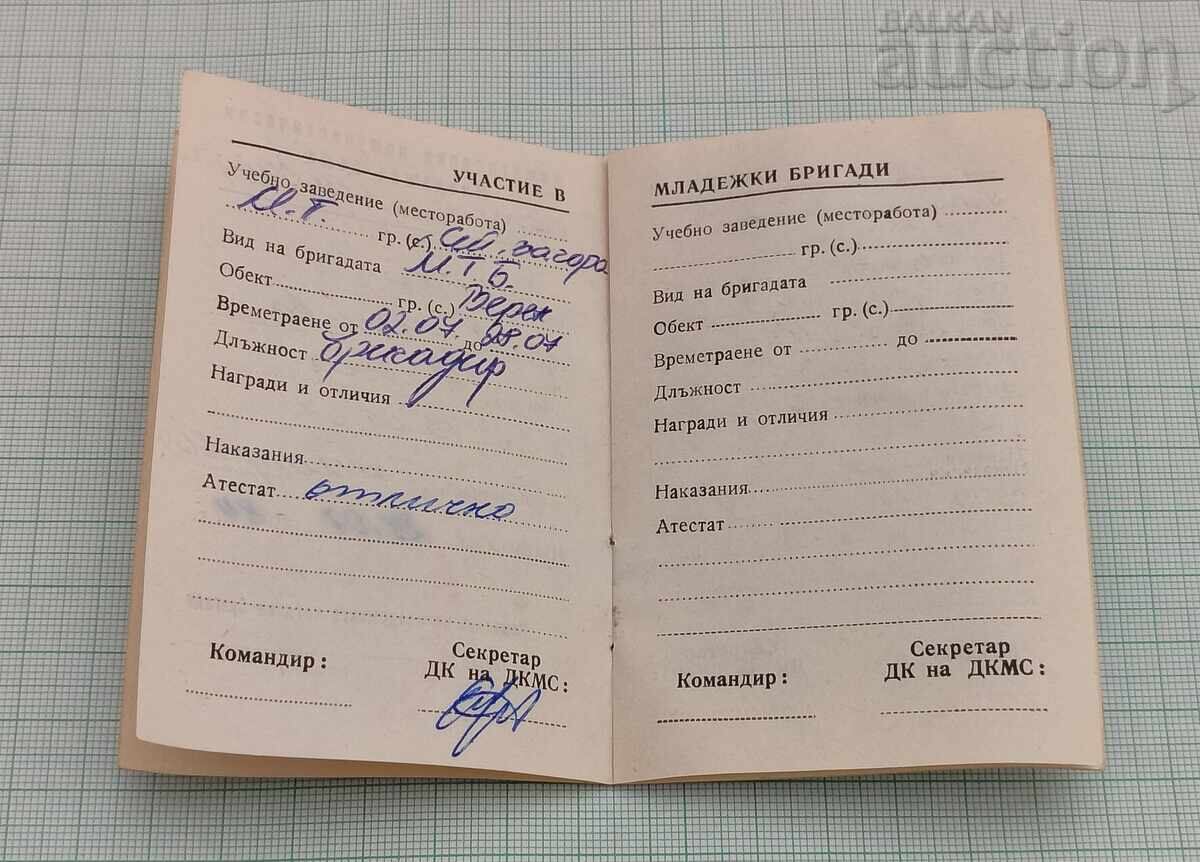 БАЛКАН
auction
УЧАСТИЕ В
Учебно заведение (месторабота)
М.Т. гр. (с.) Ст. Загора
Вид на бригадата М.Т Б.
Обект гр. (с.) Верен
Времетраене от 02.07. до 28 07
Длъжност бригадир
Награди и отличия
Наказания
Атестат отлично
Командир:
Секретар
ДК на ДКМС:
МЛАДЕЖКИ БРИГАДИ
Учебно заведение (месторабота)
гр. (с.)
Вид на бригадата
Обект гр. (с.)
Времетраене от до
Длъжност
Награди и отличия
Наказания
Атестат
Командир:
Секретар
ДК на ДКМС: